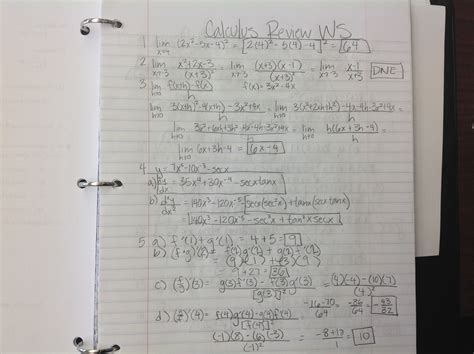 Calculus Review WS
1. lim x→4 (2x²-5x-4)² = [2(4)²-5(4)-4]² = 64
2. lim x→-3 x²+2x-3/(x+3)² = lim x→-3 (x+3)(x-1)/(x+3)² = lim x→-3 x-1/x+3 DNE
3. lim h→0 f(x+h)-f(x)/h f(x)=3x²-4x
lim h→0 3(x+h)²-4(x+h)-3x²+4x/h = lim h→0 3(x²+2xh+h²)-4x-4h-3x²+4x/h =
lim h→0 3x²+6xh+3h²-4x-4h-3x²+4x/h = lim h→0 h(6x+3h-4)/h =
lim h→0 6x+3h-4 = 6x-4
4. y = 7x⁵-10x⁻³-secx
a) dy/dx = 35x⁴+30x⁻⁴-secxtanx
b) d²y/dx² = 140x³-120x⁻⁵-[secx(sec²x)+tanx(secxtanx)]
= 140x³-120x⁻⁵-sec³x+tan²xsecx
5. a) f'(1)+g'(1) = 4+5 = 9
= 9+27 = 36
c) (f/g)'(3) = g(3)f'(3)-f(3)g'(3)/[g(3)]² = (4)(-4)-(10)(7)/(4)²
-16-70/64 = -86/64 = -43/32
= -8+18/1 = 10